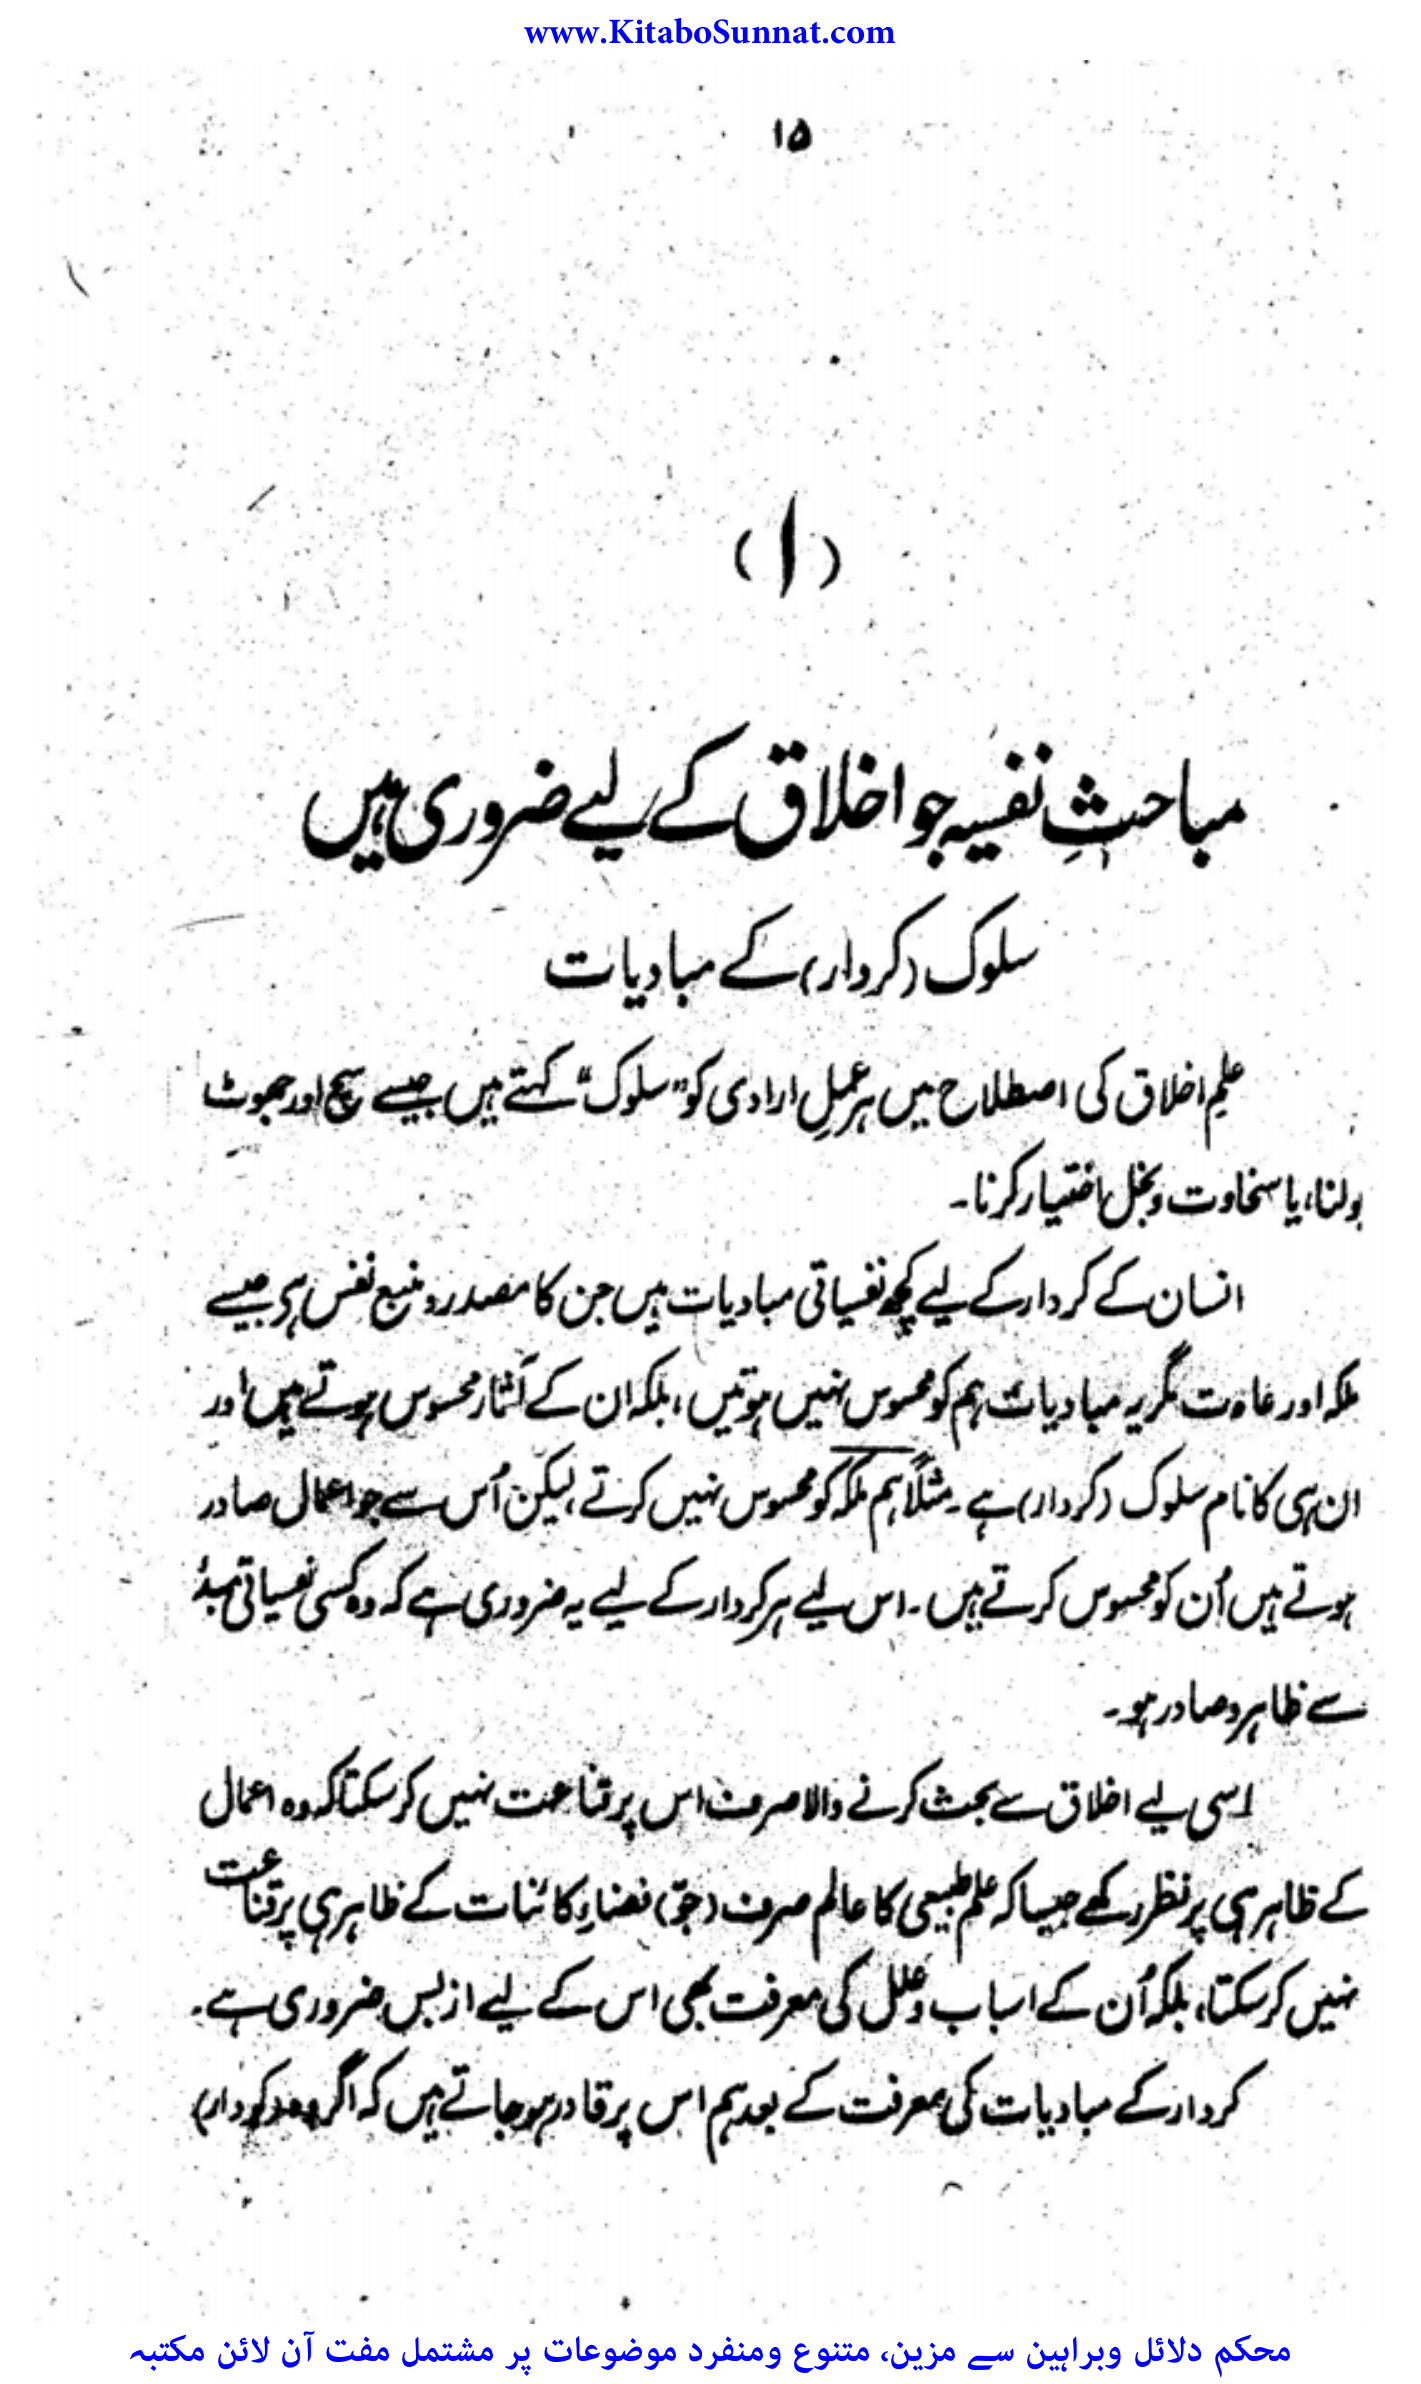 www.KitaboSunnat.com
۱۵
(۱)
مباحثِ نفسیہ جو اخلاق کے لیے ضروری ہیں
سلوک (کردار) کے مبادیات
علمِ اخلاق کی اصطلاح میں ہر عملِ ارادی کو "سلوک" کہتے ہیں جیسے سچ اور جھوٹ
بولنا، یا سخاوت و بخل اختیار کرنا۔
انسان کے کردار کے لیے کچھ نفسیاتی مبادیات ہیں جن کا مصدر و منبع نفس ہی جیسے
ملکہ اور عادت مگر یہ مبادیات ہم کو محسوس نہیں ہوتیں، بلکہ ان کے آثار محسوس ہوتے ہیں اور
ان ہی کا نام سلوک (کردار) ہے۔ مثلاً ہم ملکہ کو محسوس نہیں کرتے، لیکن اُس سے جو اعمال صادر
ہوتے ہیں اُن کو محسوس کرتے ہیں۔ اس لیے ہر کردار کے لیے یہ ضروری ہے کہ وہ کسی نفسیاتی مبدءٔ
سے ظاہر و صادر ہو۔
اسی لیے اخلاق سے بحث کرنے والا صرف اس پر قناعت نہیں کر سکتا کہ وہ اعمال
کے ظاہر ہی پر نظر رکھے جیسا کہ علم طبیعی کا عالم صرف (جوّ) فضاءِ کائنات کے ظاہر ہی پر قناعت
نہیں کر سکتا، بلکہ اُن کے اسباب و علل کی معرفت بھی اس کے لیے ازبس ضروری ہے۔
کردار کے مبادیات کی معرفت کے بعد ہم اس پر قادر ہو جاتے ہیں کہ اگر وہ (کردار)
محکم دلائل وبراہین سے مزین، متنوع ومنفرد موضوعات پر مشتمل مفت آن لائن مکتبہ